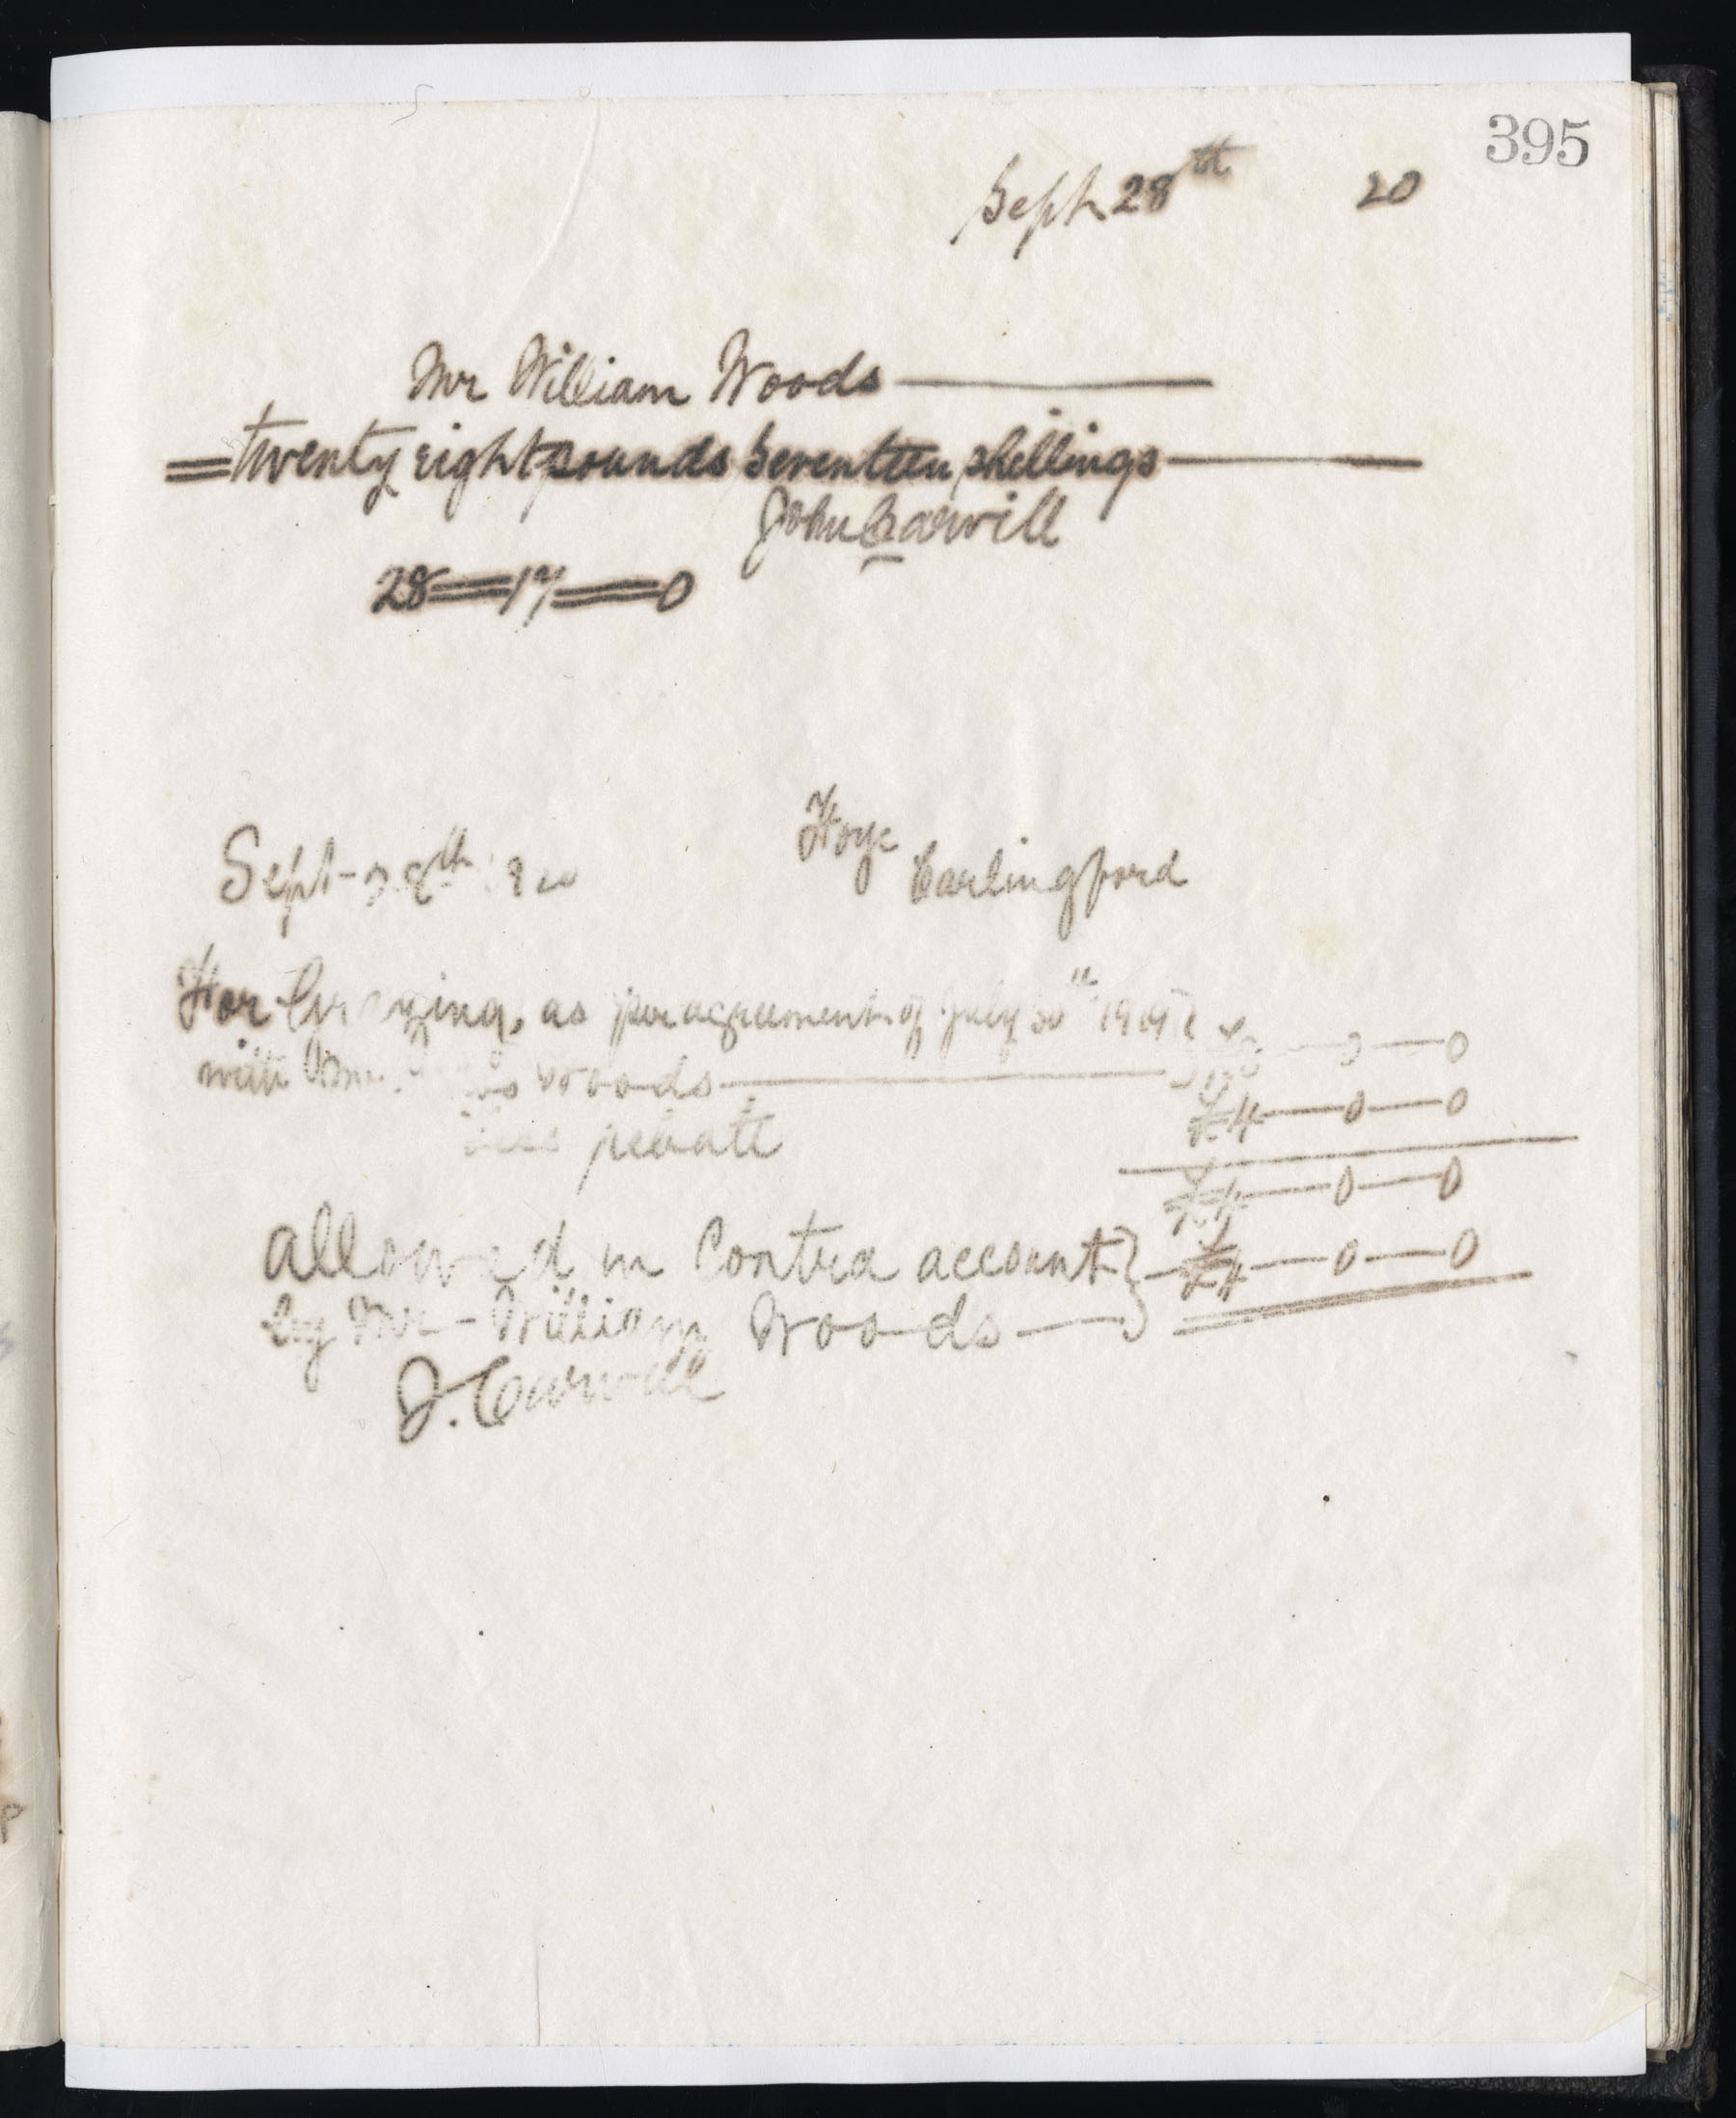 395
Sept 28th 20
Mr William Woods
twenty eight pounds Seventeen shillings
John Carvill
28=17=0
Hoye
Sept 28th 20 Carlingford
For Grazing, as per agreement of July 30th 1919
with Woods 0 — 0
£4 — 0 — 0
Less rebate
£4 — 0 — 0
allowed in Contra account} £4 — 0 — 0
by Mr William Woods
J. Carvill